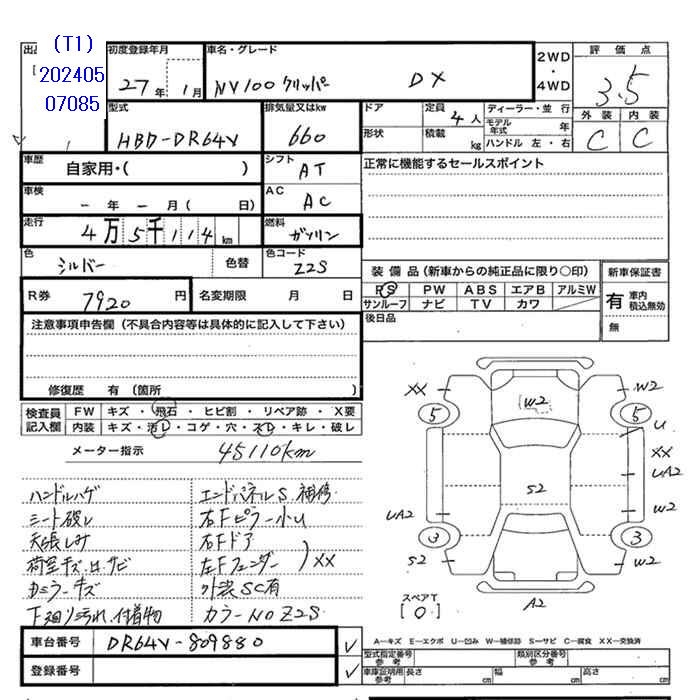 出品
(T1)
202405
07085
初度登録年月
27年 1月
車名・グレード
NV100 クリッパー DX
2WD
・
4WD
評価点
3.5
型式
HBD-DR64V
排気量又はkw
660
ドア
形状
定員
4人
積載
kg
ディーラー・並 行
モデル年式 年
ハンドル 左・右
外装 内装
C C
車歴
自家用・( )
シフト
AT
正常に機能するセールスポイント
車検
- 年 - 月( 日)
AC
AC
走行
4万5千114km
燃料
ガソリン
色
シルバー
色替
色コード
Z2S
装備品(新車からの純正品に限り○印)
PS PW ABS エアB アルミW
サンルーフ ナビ TV カワ
後日品
新車保証書
有 車内積込無効
無
R券
7920円
名変期限 月 日
注意事項申告欄(不具合内容等は具体的に記入して下さい)
修復歴 有(箇所 )
検査員記入欄
FW キズ・飛石・ヒビ割・リペア跡・X要
内装 キズ・汚レ・コゲ・穴・スレ・キレ・破レ
メーター指示 45110km
ハンドルハゲ
シート破レ
天張しみ
荷室キズ、凹、サビ
カラーキズ
下廻り汚れ、付着物
エンドパネルS 補修
右Fピラー小U
右Fドア
左Fフェンダー
)XX
外装SC有
カラーNO Z2S
XX
W2
W2
5
5
U
XX
UA2
S2
UA2
W2
3
3
S2
W2
A2
スペアT
[0]
車台番号 DR64V-809880
登録番号
A―キズ E―エクボ U―凹み W―補修跡 S―サビ C―腐食 XX―交換済
型式指定番号
参考
類別区分番号
参考
車庫証明用
参考
長さ cm
幅 cm
高さ cm